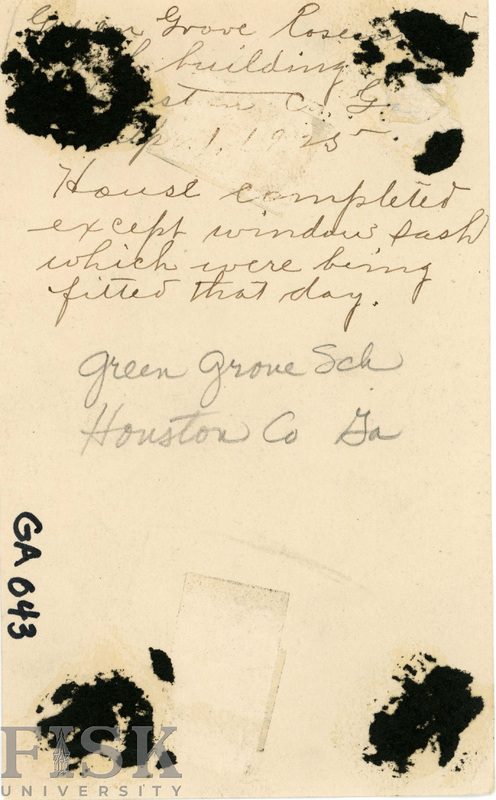 Green Grove
building
Co. Ga
1, 1925.
House completed
except window sash
which were being
fitted that day.
Green Grove Sch
Houston Co Ga
GA 043
FISK
UNIVERSITY